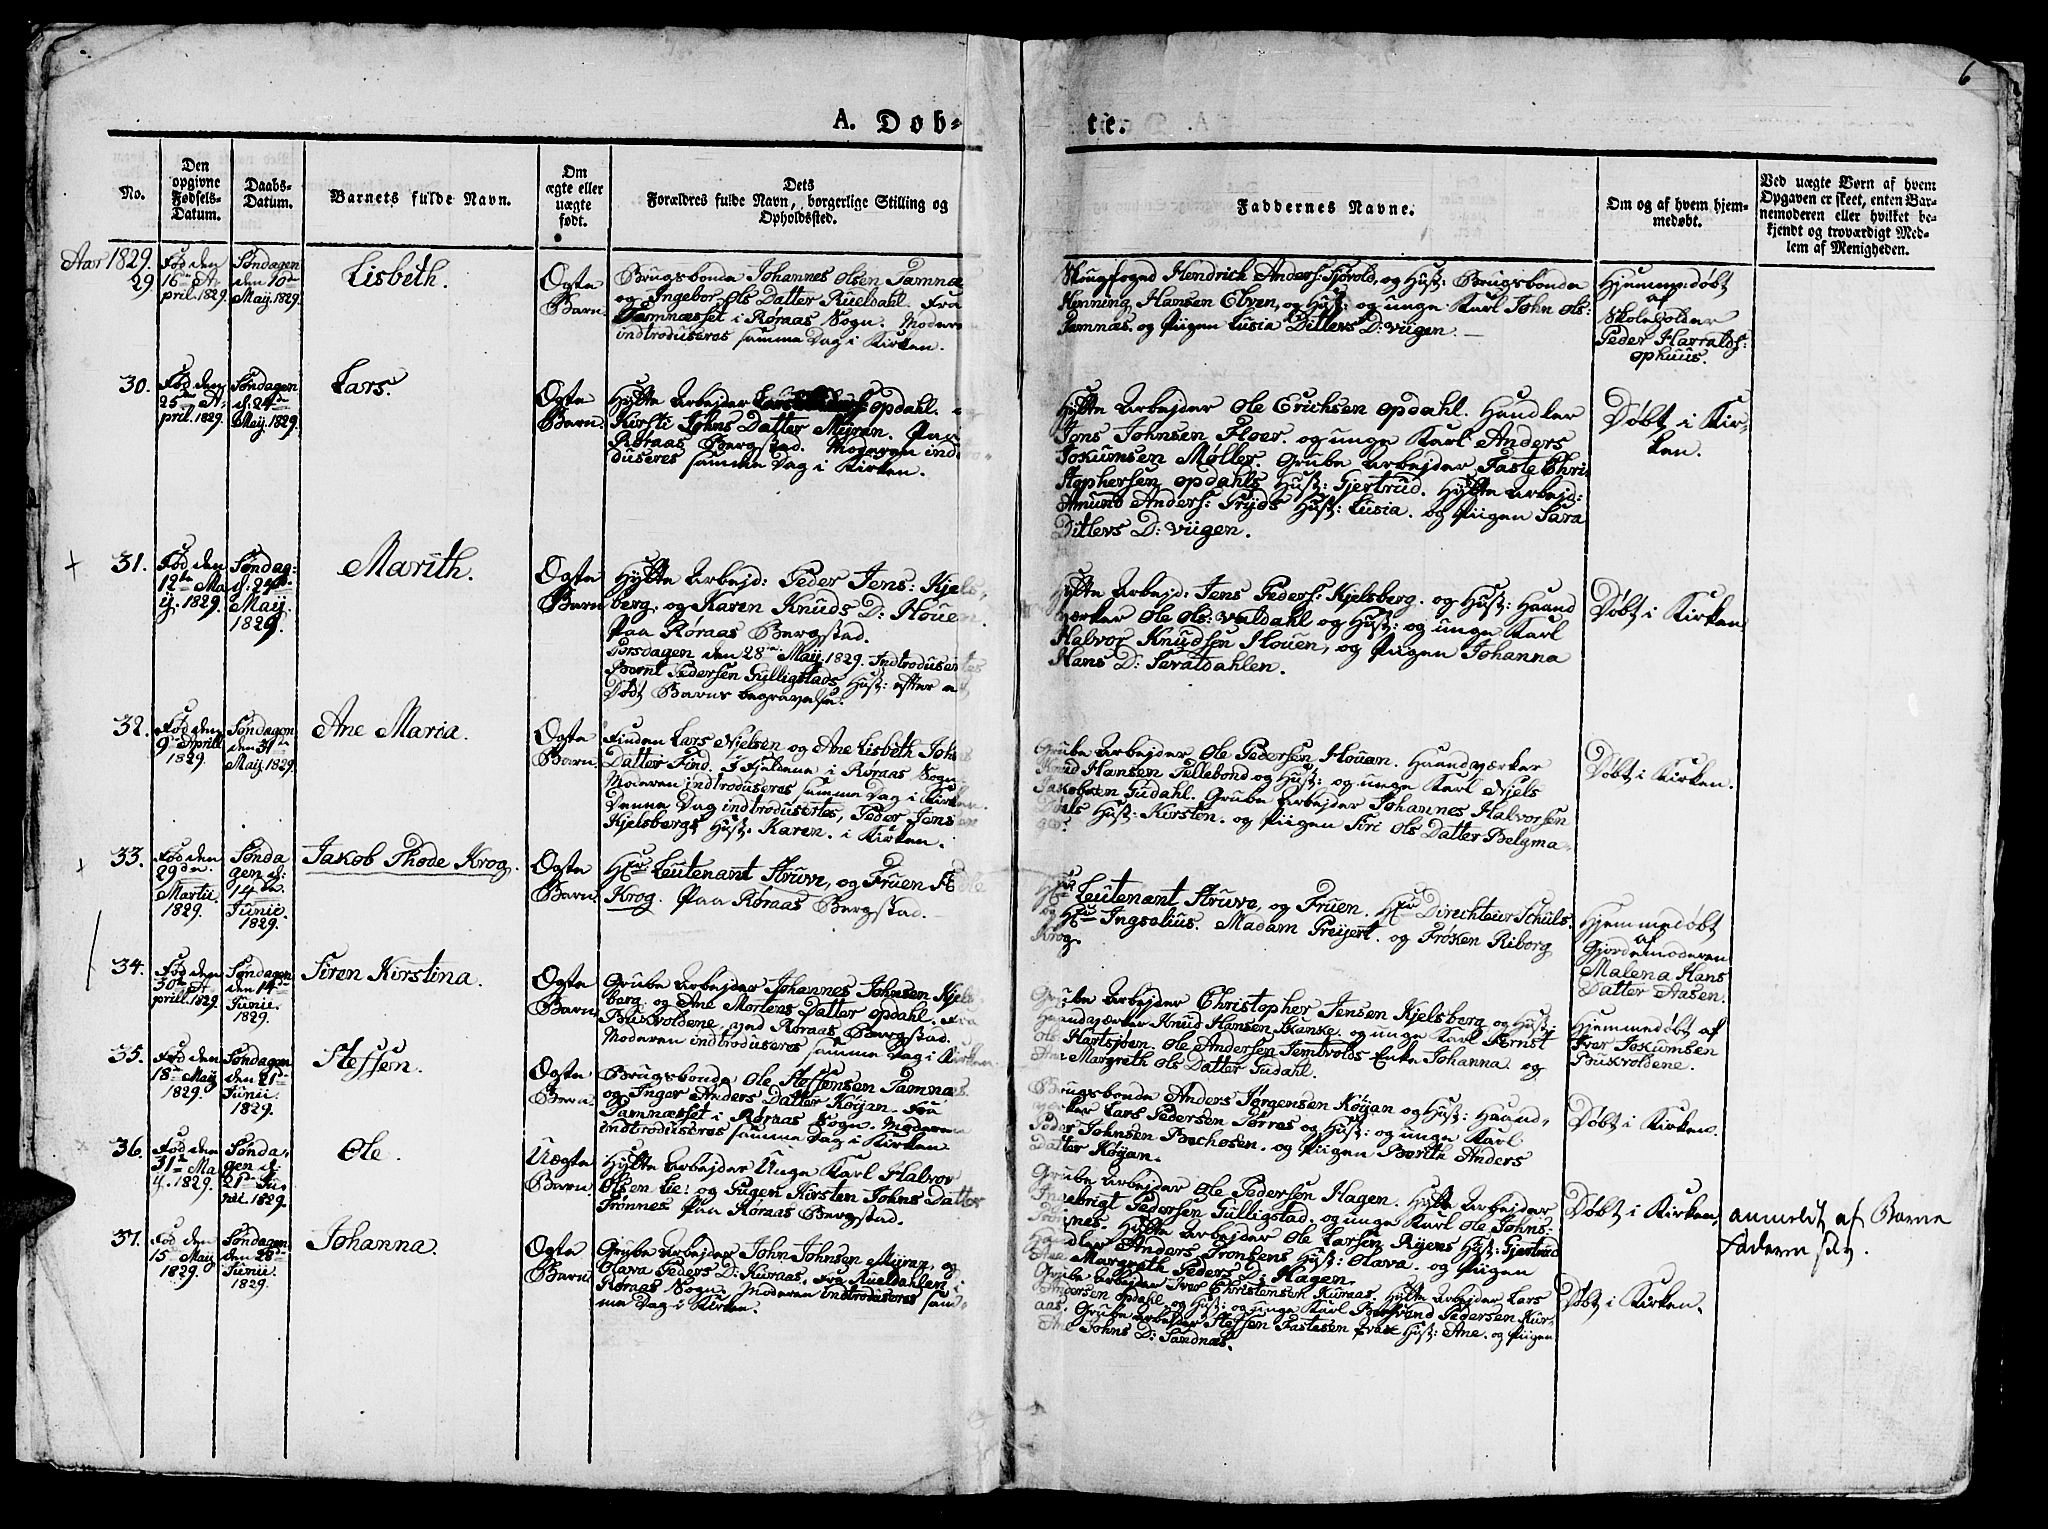 6
A. Døb-
te.
No.
Den
opgivne
Fødsels-
Datum.
Daabs-
Datum.
Barnets fulde Navn.
Om
ægte eller
uægte
født.
Dets
Forældres fulde Navn, borgerlige Stilling og
Opholdssted.
Faddernes Navne.
Om og af hvem hjem-
medøbt.
Ved uægte Børn af hvem
Opgaven er skeet, enten Bar-
nemoderen eller hvilket be-
kjendt og troværdigt Med-
lem af Menigheden.
Aar 1829.
29.
Fød den
16de A-
pril. 1829.
Søndagen
den 10de
May. 1829.
Lisbeth.
Ægte
Barn.
Brugsbonde Johannes Olsen Tamnæ
og Ingebor Ols Datter Rueldahl. Fra
Tamnæsset i Røraas Sogn. Moderen
indtroduseres samme Dag i Kirken.
Skougfoged Hendrick Anders: Sjøvold, og Hust: Brugsbonde
Henning Hansen Elven, og Hust: og unge Karl John Ols:
Tamnæs. og Piigen Lusia Ditlevs D: Viigen.
Hjemmedøbt
af
Skoleholder
Peder Harralds:
ophuus.
30.
Fød den
25de A-
pril. 1829.
Søndagen
d. 24de
May. 1829.
Lars.
Ægte
Barn.
Hytte Arbejder Opdahl. og
Kirsti Johns Datter Myran. Paa
Røraas Bergstad. Moderen indtro-
duseres samme Dag i Kirken.
Hytte Arbejder Ole Erichsen Opdahl. Handler
Jons Johnsen Floer. og unge Karl Anders
Jokumsen Møller. Grube Arbejder Faste Chri
stophersen Opdahls Hust: Gjertrud. Hytte Arbejd:
Amund Anders: Tryds Hust: Lusia. og Piigen Sara
Ditlevs D: Viigen.
Døbt i Kir-
ken.
31.
Fød den
12te Ma
y. 1829.
Søndag:
d. 24de
May.
1829.
Marith.
Ægte
Barn
Hytte Arbejd: Peder Jens: Kjels-
berg, og Karen Knuds D: Houen.
Paa Røraas Bergstad.
Torsdagen den 28de May 1829. Indtrodusertes
Bernt Pedersen Gulligstads Hust: efter et
Dødt Barns begravelse.
Hytte Arbejd: Jens Peders: Kjelsberg. og Hust: Haand
værker Ole Ols: Valdahl og Hust: og unge Karl
Halvor Knudsen Houen, og Piigen Johanna
Hans D: Sevatdahlen.
Døbt i Kirken
32.
Fød den
9de Aprill
1829.
Søndagen
den 31te
May. 1829.
Ane Maria.
Ægte
Barn.
Finden Lars Nielsen og Ane Lisbeth Johns
Datter Find. I Fjeldene i Røraas Sogn.
Moderen indtroduseres samme Dag i Kirken.
Denne Dag indtrodusertes, Peder Jensen
Kjelsbergs Hust: Karen. i Kirken.
Grube Arbejder Ole Pedersen Houan. Haandværker
Knud Hansen Tellebond og Hust: og unge Karl Niels
Jakobsen Sudahl. Grube Arbejder Johannes Halvorsen
Døels Hust: Kirsten. og Piigen Siri Ols Datter Belgma-
ger.
Døbt i Kirken.
33.
Fød den
29de
Martii
1829.
Sønda
gen d:
14de
Junii.
1829.
Jakob Thode Krog.
Ægte
Barn.
Hr. Leutenant Struve, og Fruen Fødde
Krog. Paa Røraas Bergstad.
Hr. Leutenant Struve, og Fruen. Hr. Direchteur Schuls.
og Hr. Ingsalius. Madam Preijert. og Frøken Riborg
Krog.
Hjemmedøbt
af
Gjordemoderen
Malena Hans
Datter Aasen.
34.
Fød den
30te A-
prill. 1829.
Søndagen
den 14de
Junii.
1829.
Siren Kirstina.
Ægte
Barn.
Grube Arbejder Johannes Johnsen Kjels
berg. og Ane Mortens Datter Opdahl. Fra
Bukvoldene. ved Røraas Bergstad.
Moderen indtroduseres samme Dag i Kirken.
Grube Arbejder Christopher Jensen Kjelsberg og Hust:
Haandværker Knud Hansen Skanke. og unge Karl Bernt
Ols Hartsjøen. Ole Andersen Jemtvolds Enke Johanna. og
Ane Margreth Ols Datter Sudahl.
Hjemmedøbt af
Iver Jokumsen
Bukvoldene.
35.
Fød den
18de May
1829.
Søndagen
den 21de
Junii.
1829.
Steffen.
Ægte
Barn.
Brugsbonde Ole Steffensen Tamnæs.
og Inger Anders Datter Køjan. Fra
Tamnæsset i Røraas Sogn. Moderen
indtroduseres samme Dag i Kirken
Brugsbonde Anders Jørgensen Køjan og Hust: Haand-
værker Lars Pedersen Torres og Hust: og unge Karl
Peder Johnsen Bechosen. og Piigen Borith Anders
Datter Køjan.
Døbt i Kirken.
36.
Fød den
31te Ma
y. 1829.
Sønda-
gen d:
21de Ju-
nii. 1829.
Ole.
Uægte
Barn.
Hytte Arbejder Unge Karl Halvor
Olsen Lie: og Pigen Kirsten Johns Datter
Trønnes Paa Røraas Bergstad.
Grube Arbejder Ole Pedersen Hagen. Hytte Arbejder
Ingebrigt Pedersen Gulligstad. og unge Karl Ole Johns:
Trønnes. Hytte Arbejder Ole Larsen Ryens Hust: Gjertrud
Handler Anders Tronsens Hust: Olava. og Piigen
Ane Margreth Peders D: Hagen.
Døbt i Kirken,
anmeldt af Barne
Faderen selv.
37.
Fød den
15de May
1829.
Søndagen
den 28de
Junii.
1829.
Johanna.
Ægte
Barn.
Grube Arbejder John Johnsen Myran, og
Olava Peders D: Kuraas. Fra Rueldahlen i
Røraas Sogn. Moderen indtroduseres sam-
me Dag i Kirken.
Grube Arbejder Iver Christensen Kuraas. Hytte Arbejder Lars
Andersen Opdahl. og Hust: og unge Karl Pedersen Kur-
aas. Grube Arbejder Steffen Fastesen Hust: Ane. og Piigen
Ane Johns D: Sandnæs.
Døbt i Kirken.